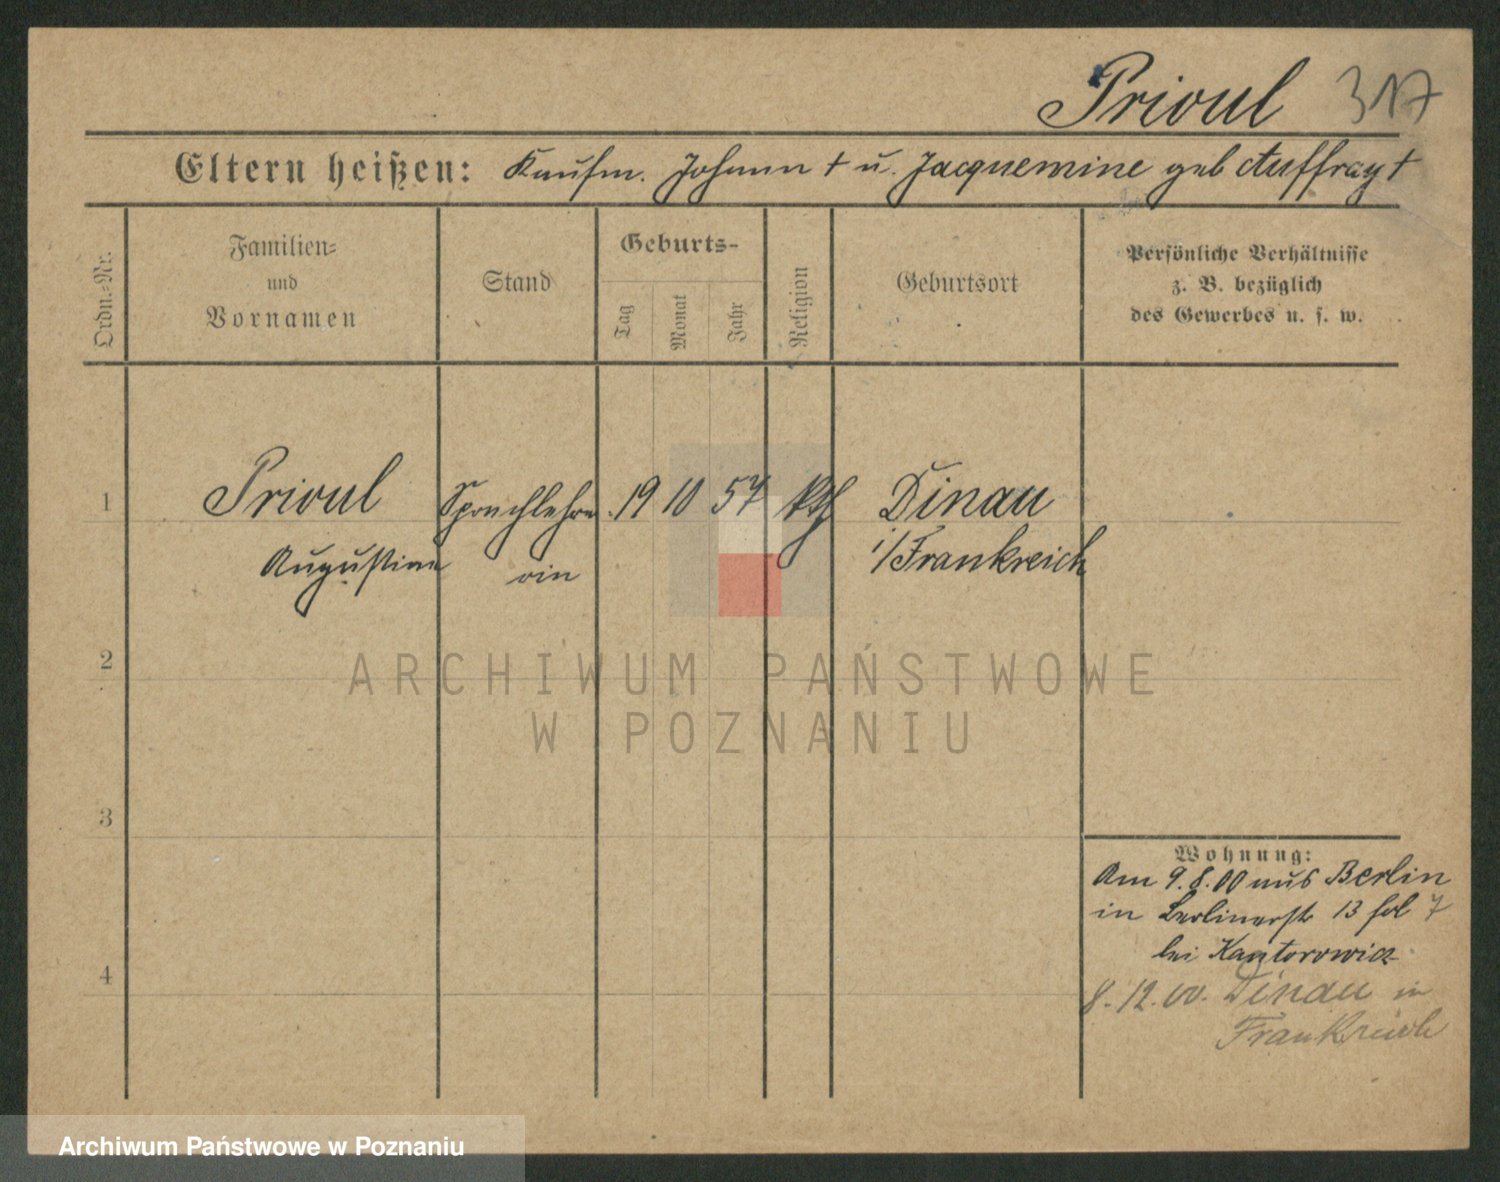 Prioul 317
Eltern heißen: Kaufm. Johann † u. Jacquemine geb Auffray †
Ordn.-Nr.
Familien-
und
Vornamen
Stand
Geburts-
Tag
Monat
Jahr
Religion
Geburtsort
Persönliche Verhältnisse
z. B. bezüglich
des Gewerbes u. s. w.
1 Prioul Sprachlehre 19 10 57 kth Dinau
Augustine rin i/Frankreich
2
3
4
Wohnung:
Am 9.8.00 aus Berlin
in Berlinerstr 13 fol 7
bei Kantorowicz
8.12.00. Dinau in
Frankreich
ARCHIWUM PAŃSTWOWE
W POZNANIU
Archiwum Państwowe w Poznaniu